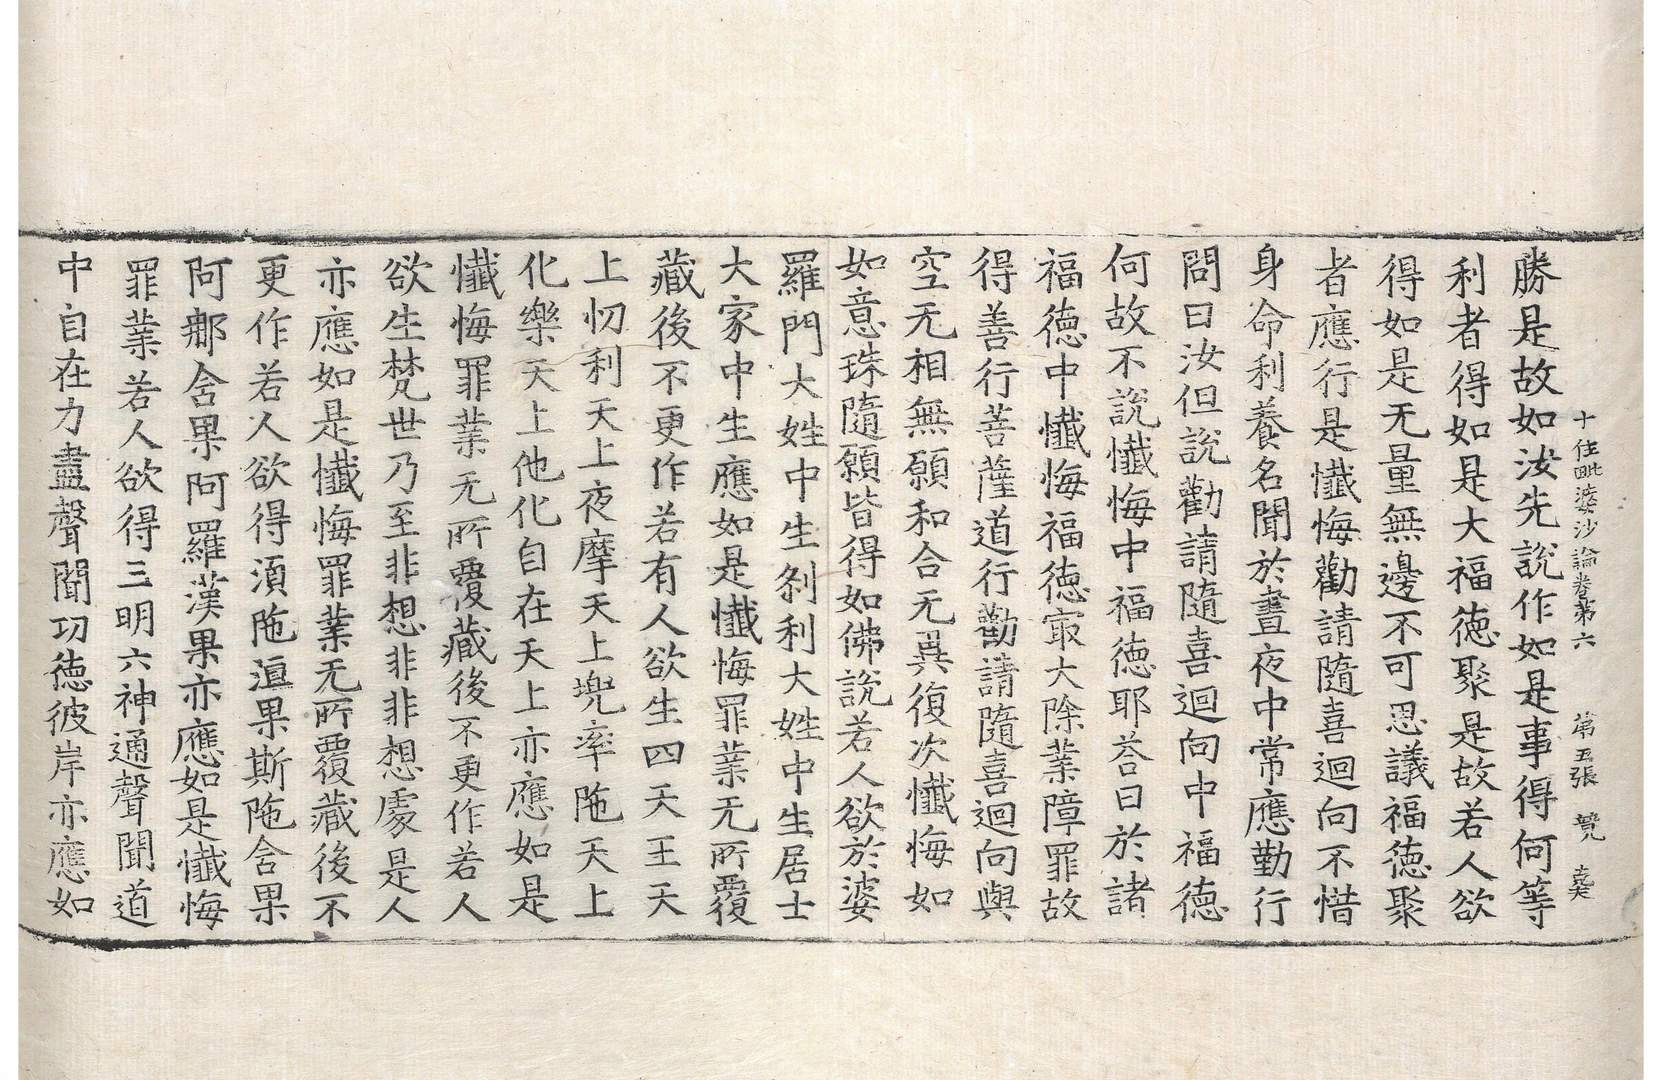 十住毗婆沙論卷第六 第五張 覺
勝是故如汝先說作如是事得何等
利者得如是大福徳聚是故若人欲
得如是无量無邊不可思議福徳聚
者應行是懺悔勸請隨喜迴向不惜
身命利養名聞於晝夜中常應勤行
問曰汝但說勸請隨喜迴向中福徳
何故不說懺悔中福徳耶荅曰於諸
福徳中懺悔福徳㝡大除業障罪故
得善行菩薩道行勸請隨喜迴向與
空无相無願和合无異復次懺悔如
如意珠隨願皆得如佛說若人欲於婆
羅門大姓中生剎利大姓中生居士
大家中生應如是懺悔罪業无所覆
藏後不更作若有人欲生四天王天
上忉利天上夜摩天上兜率陁天上
化樂天上他化自在天上亦應如是
懺悔罪業无所覆藏後不更作若人
欲生梵世乃至非想非非想處是人
亦應如是懺悔罪業无所覆藏後不
更作若人欲得湏陁洹果斯陁含果
阿那舍果阿羅漢果亦應如是懺悔
罪業若人欲得三明六神通聲聞道
中自在力盡聲聞功徳彼岸亦應如